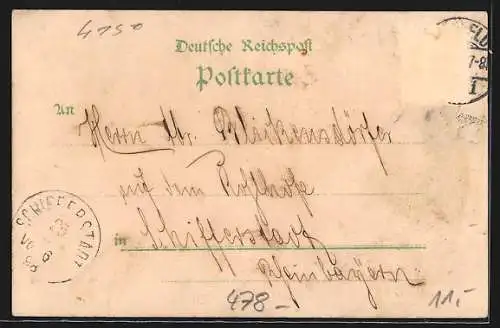 4750
Deutsche Reichspost
Postkarte
An
Herrn Blickensdörfer
auf dem Kohlhofe
in Schifferstadt
Rheinbayern
SCHIFFERSTADT
7-8
478-
11,-